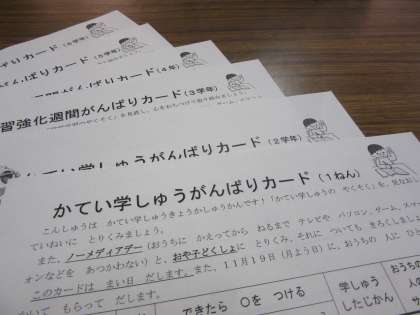 ばりカード(6学年)
んばりカード(5学年)
がんばりカード(4年)
習強化週間がんばりカード(3学年)
かてい学しゅうがんばりカード(2学年)
かてい学しゅうがんばりカード(1ねん)
こんしゅうは かてい学しゅうきょうかしゅうかんです!「かてい学しゅうの やくそく」を、見なおし、
ていねいに とりくみましょう。
また、ノーメディアデー(おうちに かえってから ねるまで テレビや パソコン、ゲーム、スマー
ォンなどを あつかわない)と、おや子どくしょに とりくみ、それに ついても きろくしましょ
このカードは まい日 だします。また、11月19日(月よう日)に、おうちの 人に ひと
かいて もらって だします。
できたら ○を つける
学しゅう
したじかん
おうちの
人の